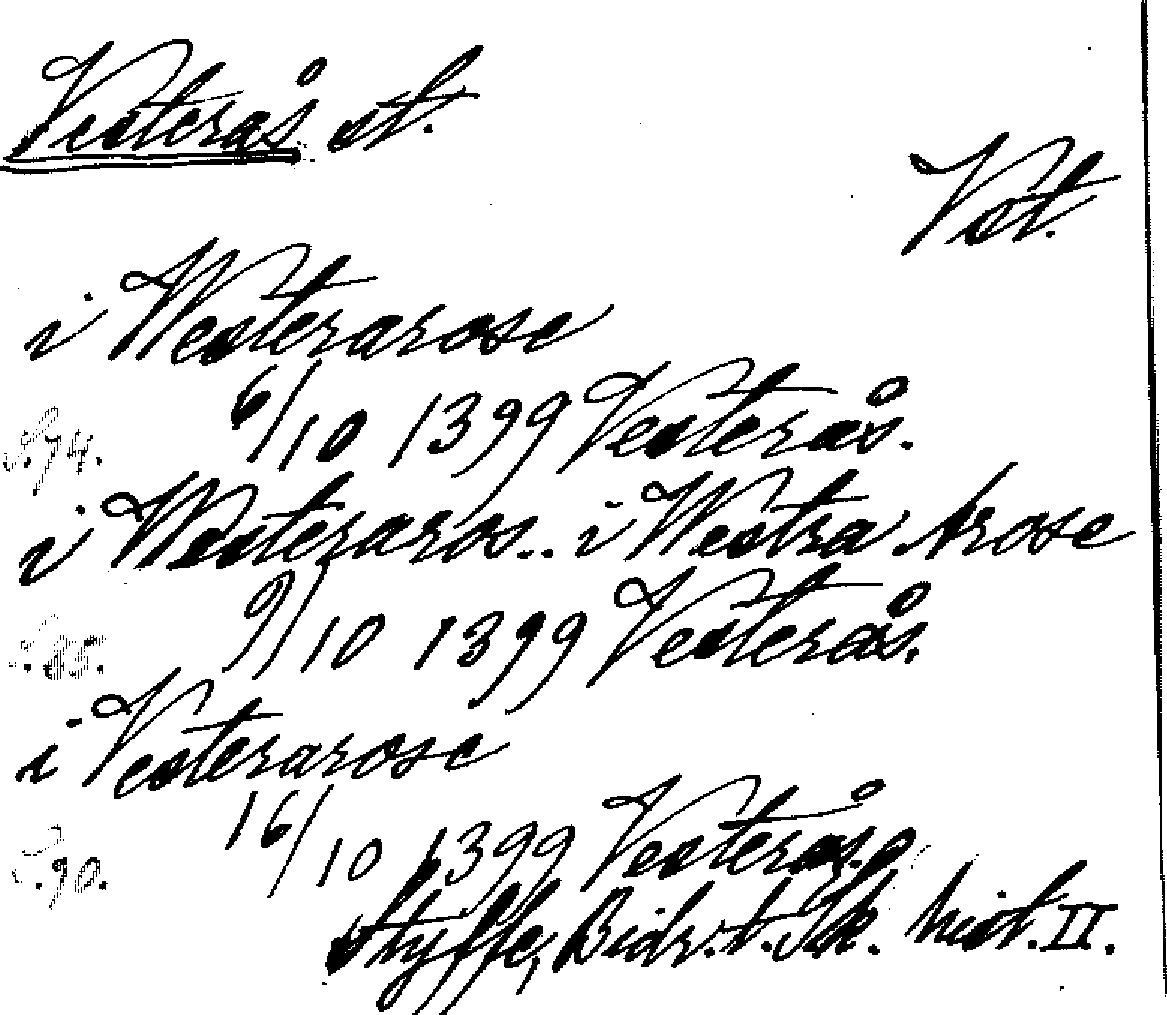 Vesterås st.
Vst.
i Westerarose
S. 74. 6/10 1399 Vesterås.
i Westeraros.. i Westra Arose
S. 85. 9/10 1399 Vesterås.
i Vesterarose
S. 90. 16/10 1399 Vesterås.
Styffe, Bidr. t. Sk. hist. II.